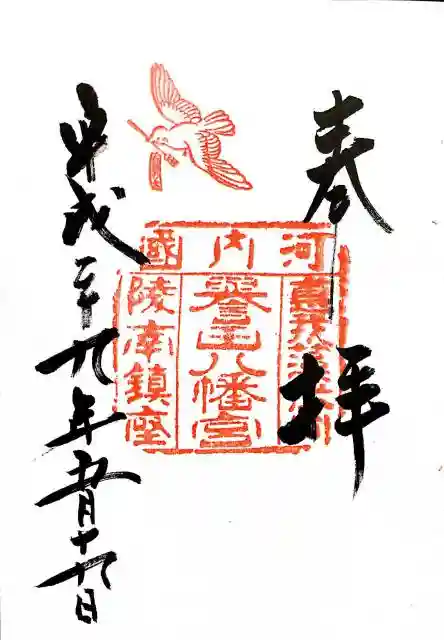 奉拝
河内國
譽田八幡宮
陵南鎮座
平成二十九年五月十九日